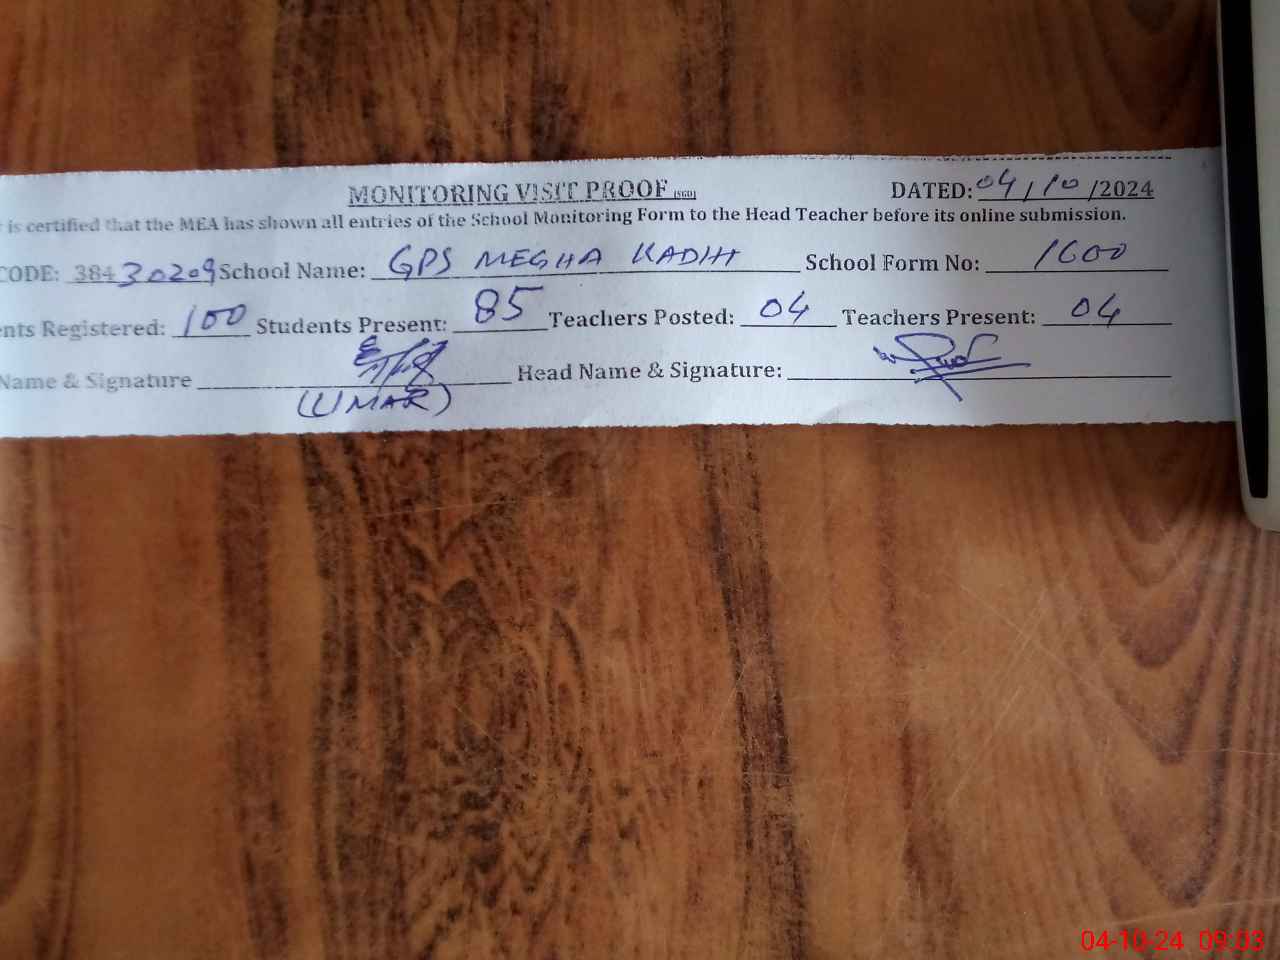 MONITORING VISIT PROOF (SGD) DATED: 04/10/2024
is certified that the MEA has shown all entries of the School Monitoring Form to the Head Teacher before its online submission.
CODE: 38430209 School Name: GPS MEGHA KADHI School Form No: 1600
nts Registered: 100 Students Present: 85 Teachers Posted: 04 Teachers Present: 04
Name & Signature Head Name & Signature:
(UMAR)
04-10-24 09:03